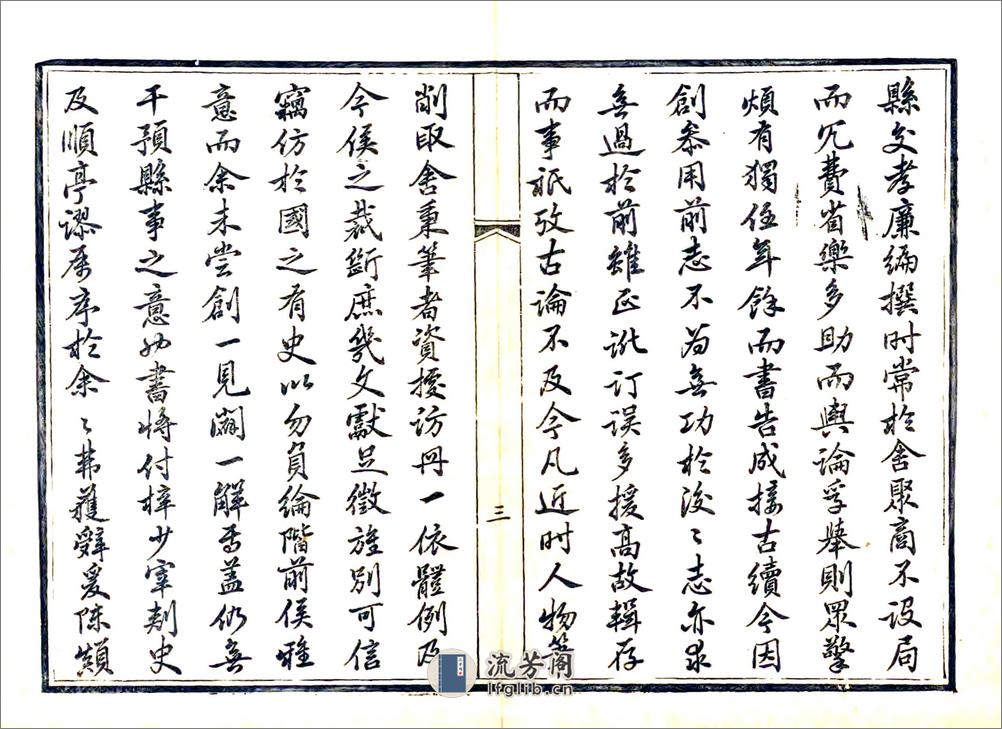 縣文孝廉編撰时常於舍聚商不设局
而冗費省樂多助而輿論孚舉則眾擎
煩有獨任年餘而書告成接古續今因
創叅用前志不为無功於後〻志亦
無過於前雖正訛订误多援髙故輯存
而事祇攷古論不及今凡近时人物筆
削取舍秉筆者資援访冊一依體例及
今侯之裁斷庶幾文獻足徵旌别可信
竊仿於國之有史以勿負綸階前侯
意而余未尝創一見闢一解焉盖仍無
干預縣事之意也書将付梓少宰刺史
及順亭謬属序於余〻弗獲辤爰陳顛
三
流芳阁
lfglib.cn